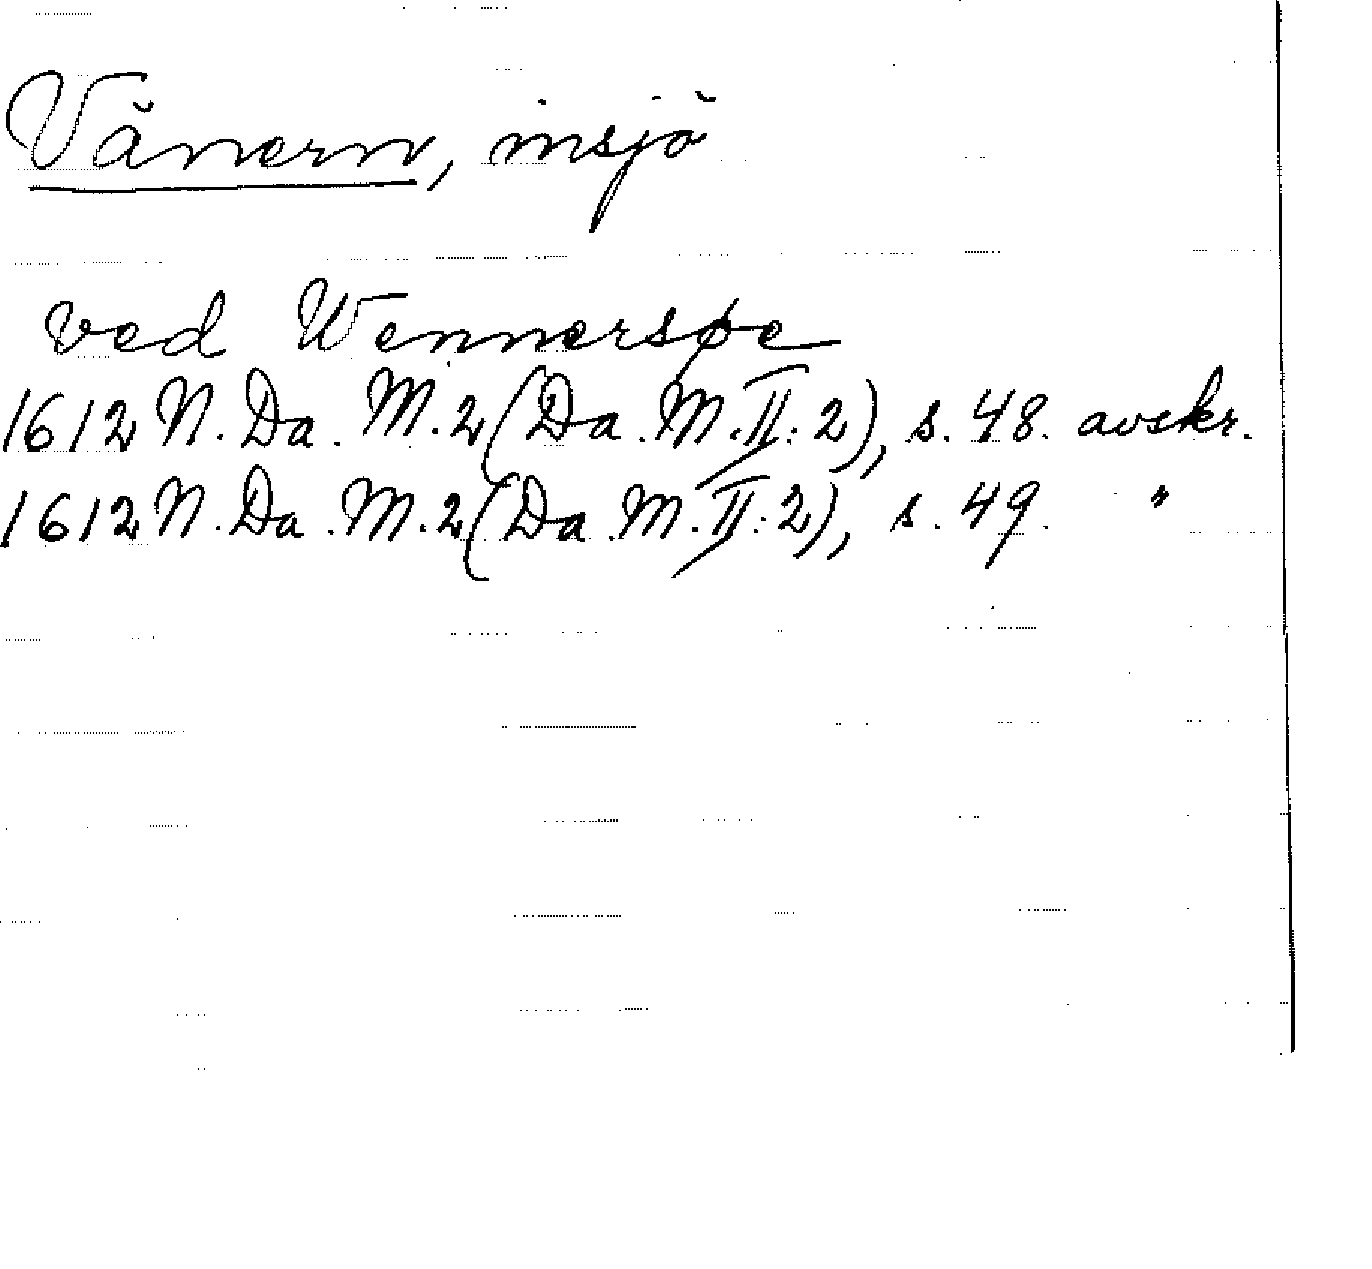 Vänern, insjö
ved Wennersøe
1612 N. Da. M. 2 (Da. M. II: 2), s. 48. avskr.
1612 N. Da. M. 2 (Da. M. II: 2), s. 49. "